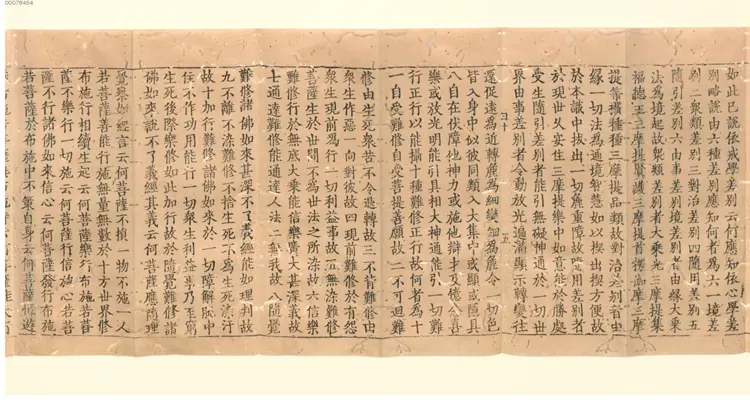 如此已說依戒學差別云何應知依心學差
別略說由六種差別應知何者為六一境差
別二衆類差別三對治差別四隨用差別五
隨引差別六由事差別境差別者由緣大乘
法為境起故衆類差別者大乘光三摩提集
福德王三摩提賢護三摩提首楞伽摩三摩
提等攝種種三摩提品類故對治差別者由
緣一切法為通境智慧如以楔出楔方便故
於本識中拔出一切麁重障故隨用差別者
於現世久安住三摩提樂中如意能於勝處
受生隨引差別者能引無礙神通於一切世
界由事差別者令動放光遍滿顯示轉變往
還促遠為近轉麁為細變細為麁令一切色
皆入身中似彼同類入大集中或顯或隱具
八自在伏障他神力或施他辯才及憶念喜
樂或放光明能引具相大神通能引一切難
行正行以能攝十種難修正行故何者為十
一自受難修自受菩提善願故二不可迴難
修由生死衆苦不令退轉故三不背難修由
衆生作惡一向對彼故四現前難修於有怨
衆生現前為行一切利益事故五無染難修
菩薩生於世間不為世法之所染故六信樂
難修行於無底大乘能信樂廣大甚深義故
七通達難修能通達人法二無我故八隨覺
難修諸佛如來甚深不了義經能如理判故
九不離不染難修不捨生死不為生死染汙
故十加行難修諸佛如來於一切障解脫中
住不作功用能行一切衆生利益事乃至窮
生死後際樂修如此加行故於隨覺難修諸
佛如來說不了義經其義云何菩薩應隨理
覺察如經言云何菩薩不損一物不施一人
若菩薩善能行施無量無數於十方世界修
布施行相續生起云何菩薩樂行布施若菩
薩不樂行一切施云何菩薩行信施心若菩
薩不行諸佛如來信心云何菩薩發行布施
若菩薩於布施中不策自身云何菩薩恒遊
00078454